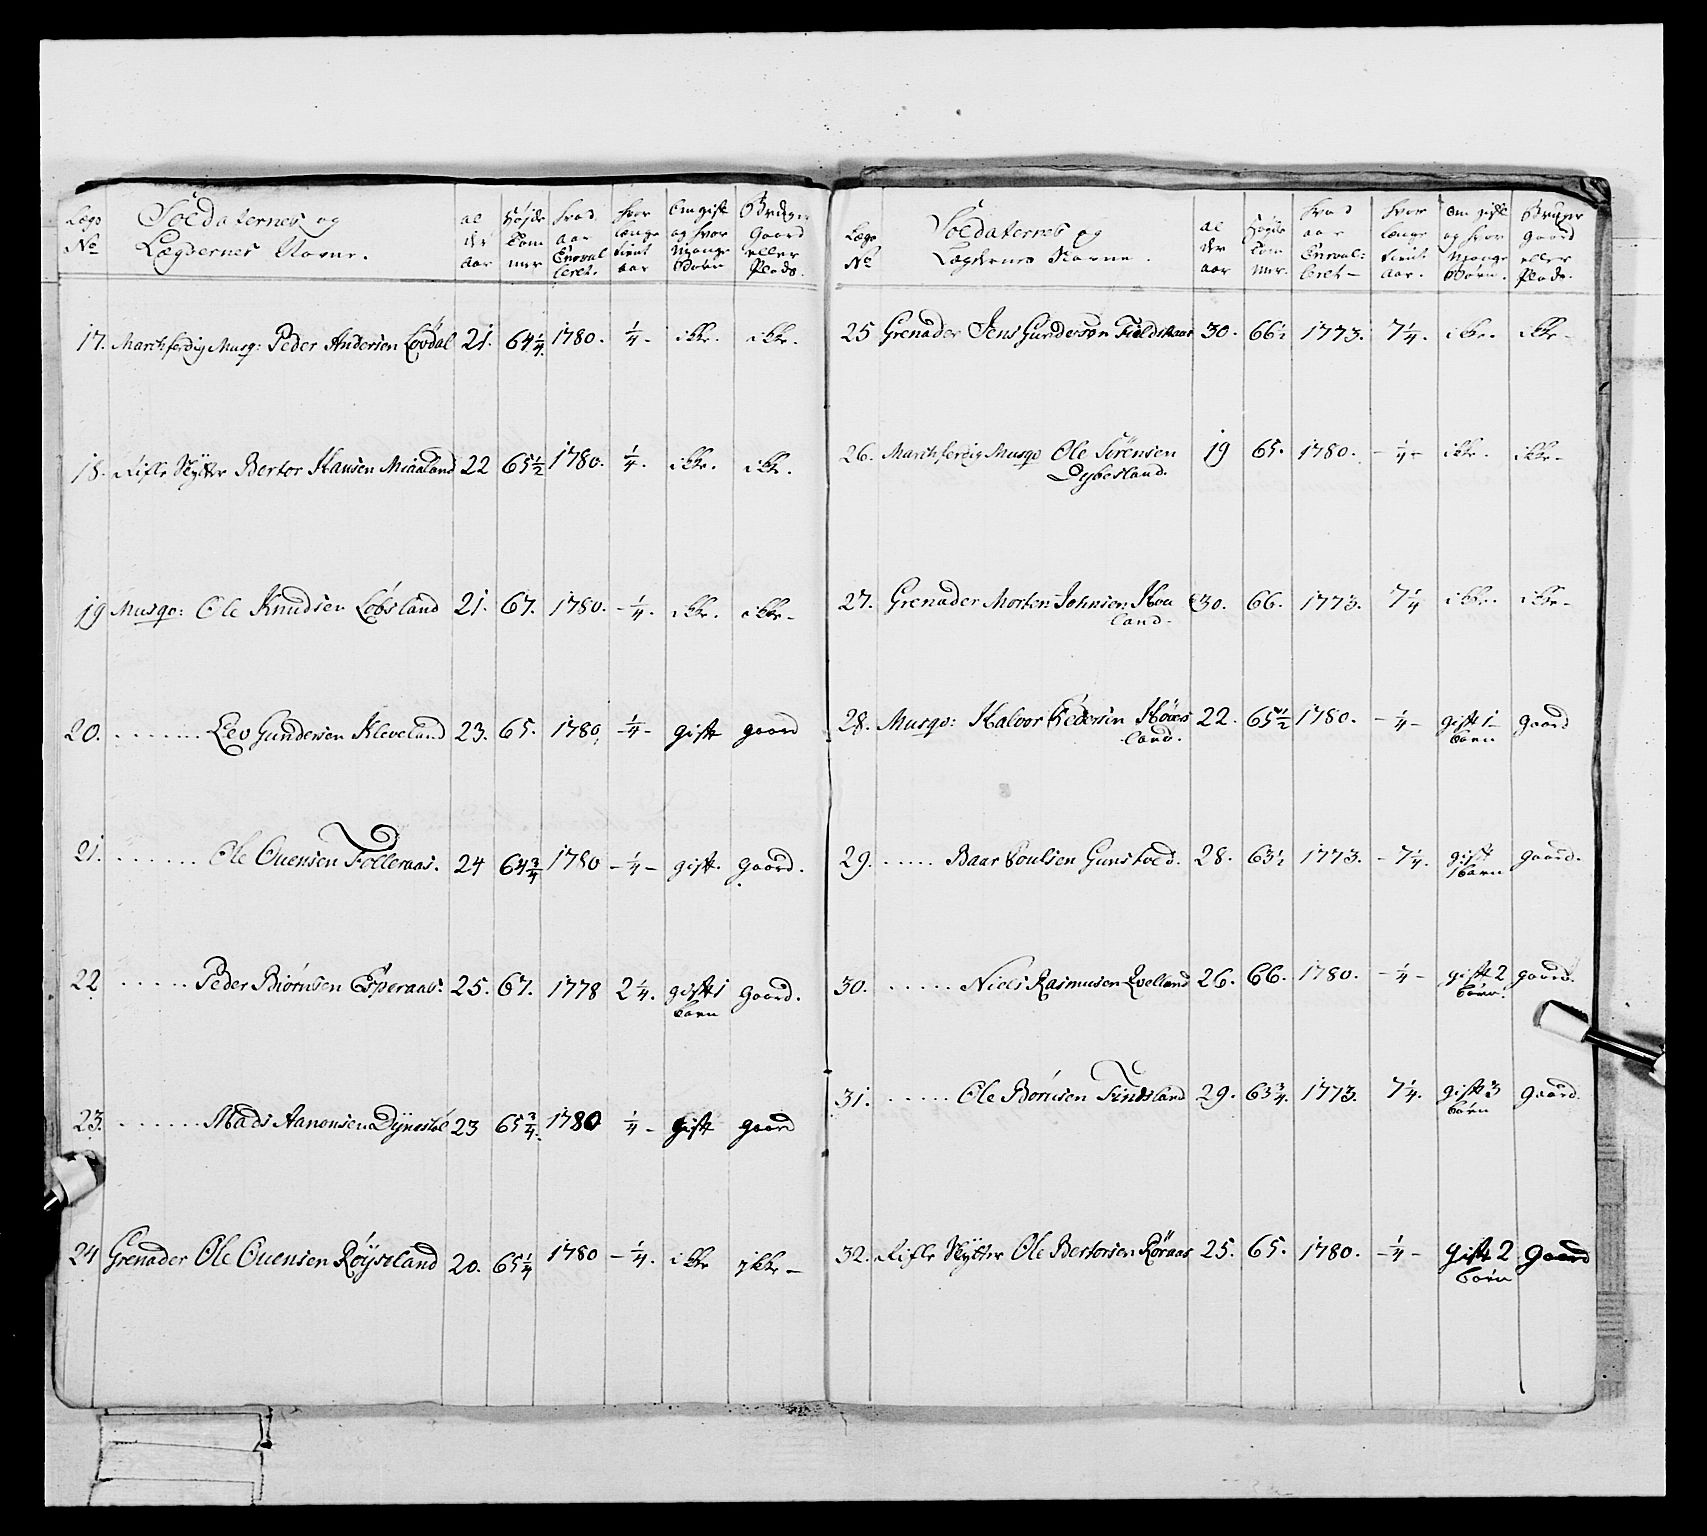 Lægs No | Soldaternes og Lægdernes Navne. | al der aar | Højde Tom mer | hvad aar Enroul leret. | hvor længe tient aar | Om gift og hvor Mange Børn | Bruger Gaard eller Plads.
17. Marchferdig Musq: Peder Andersen Løvdal | 21. | 64 1/4. | 1780. | 1/4 - | ikke. | ikke.
18. Rifle Skytter Bertor Hansen Miaaland | 22 | 65 1/2 | 1780. | 1/4. | ikke. | ikke.
19 Musqo: Ole Knudsen Løbsland | 21. | 67. | 1780. | - 1/4. | ikke. | ikke -
20. . . . . . . . Lev Gundersen Kleveland | 23. | 65. | 1780, | - 1/4 - | gift | gaard
21. . . . . . . Ole Ouensen Følleraas. | 24 | 64 3/4 | 1780 | - 1/4 - | gift. | gaard.
22 . . . . . . Peder Biørnsen Esperaas. | 25. | 67. | 1778 | 2 1/4. | gift 1 barn | gaard.
23. . . . . . . Mads Aanensen Dynestøl | 23 | 65 3/4. | 1780 | 1/4 - | gift | gaard
24 Grenader Ole Ouensen Røyseland | 20. | 65 1/4 | 1780 | - 1/4. | ikke | ikke -
Lægs No | Soldaternes og Lægdernes Navne. | al der aar | Højde Tom mer. | hvad aar Enroul: leret - | hvor længe tient aar. | Om gift og hvor Mange Børn. | Bruger gaard eller Plads.
25 Grenader Jens Gunderson Fieldskaar | 30. | 66 1/2 | 1773. | 7 1/4. | ikke. | ikke -
26. Marchferdig Musqo Ole Sørensen
Dybesland. | 19 | 65. | 1780. | - 1/4 - | ikke. | ikke -
27. Grenader Morten Johnsen Hoe
land. | 30. | 66. | 1773. | 7 1/4 | ikke. | ikke -
28. Musqo: Halvor Pedersen Høies
land. | 22. | 65 1/2 | 1780. | - 1/4 - | gift 1 barn | gaard
29. . . . . . Baar Poulsen Gunstved. | 28. | 63 1/2 | 1773. | - 7 1/4. | gift 1 barn | gaard.
30. . . . . . Niels Rasmusen Qvelland | 26. | 66. | 1780. | - 1/4 - | gift 2 børn. | gaard.
31. . . . . . Ole Børnsen Findsland | 29. | 63 3/4. | 1773. | 7 1/4. | gift 3 børn | gaard.
32. Rifle Skytter Ole Bertorsen Røraas | 25. | 65. | 1780. | - 1/4 - | gift 2 børn | gaard